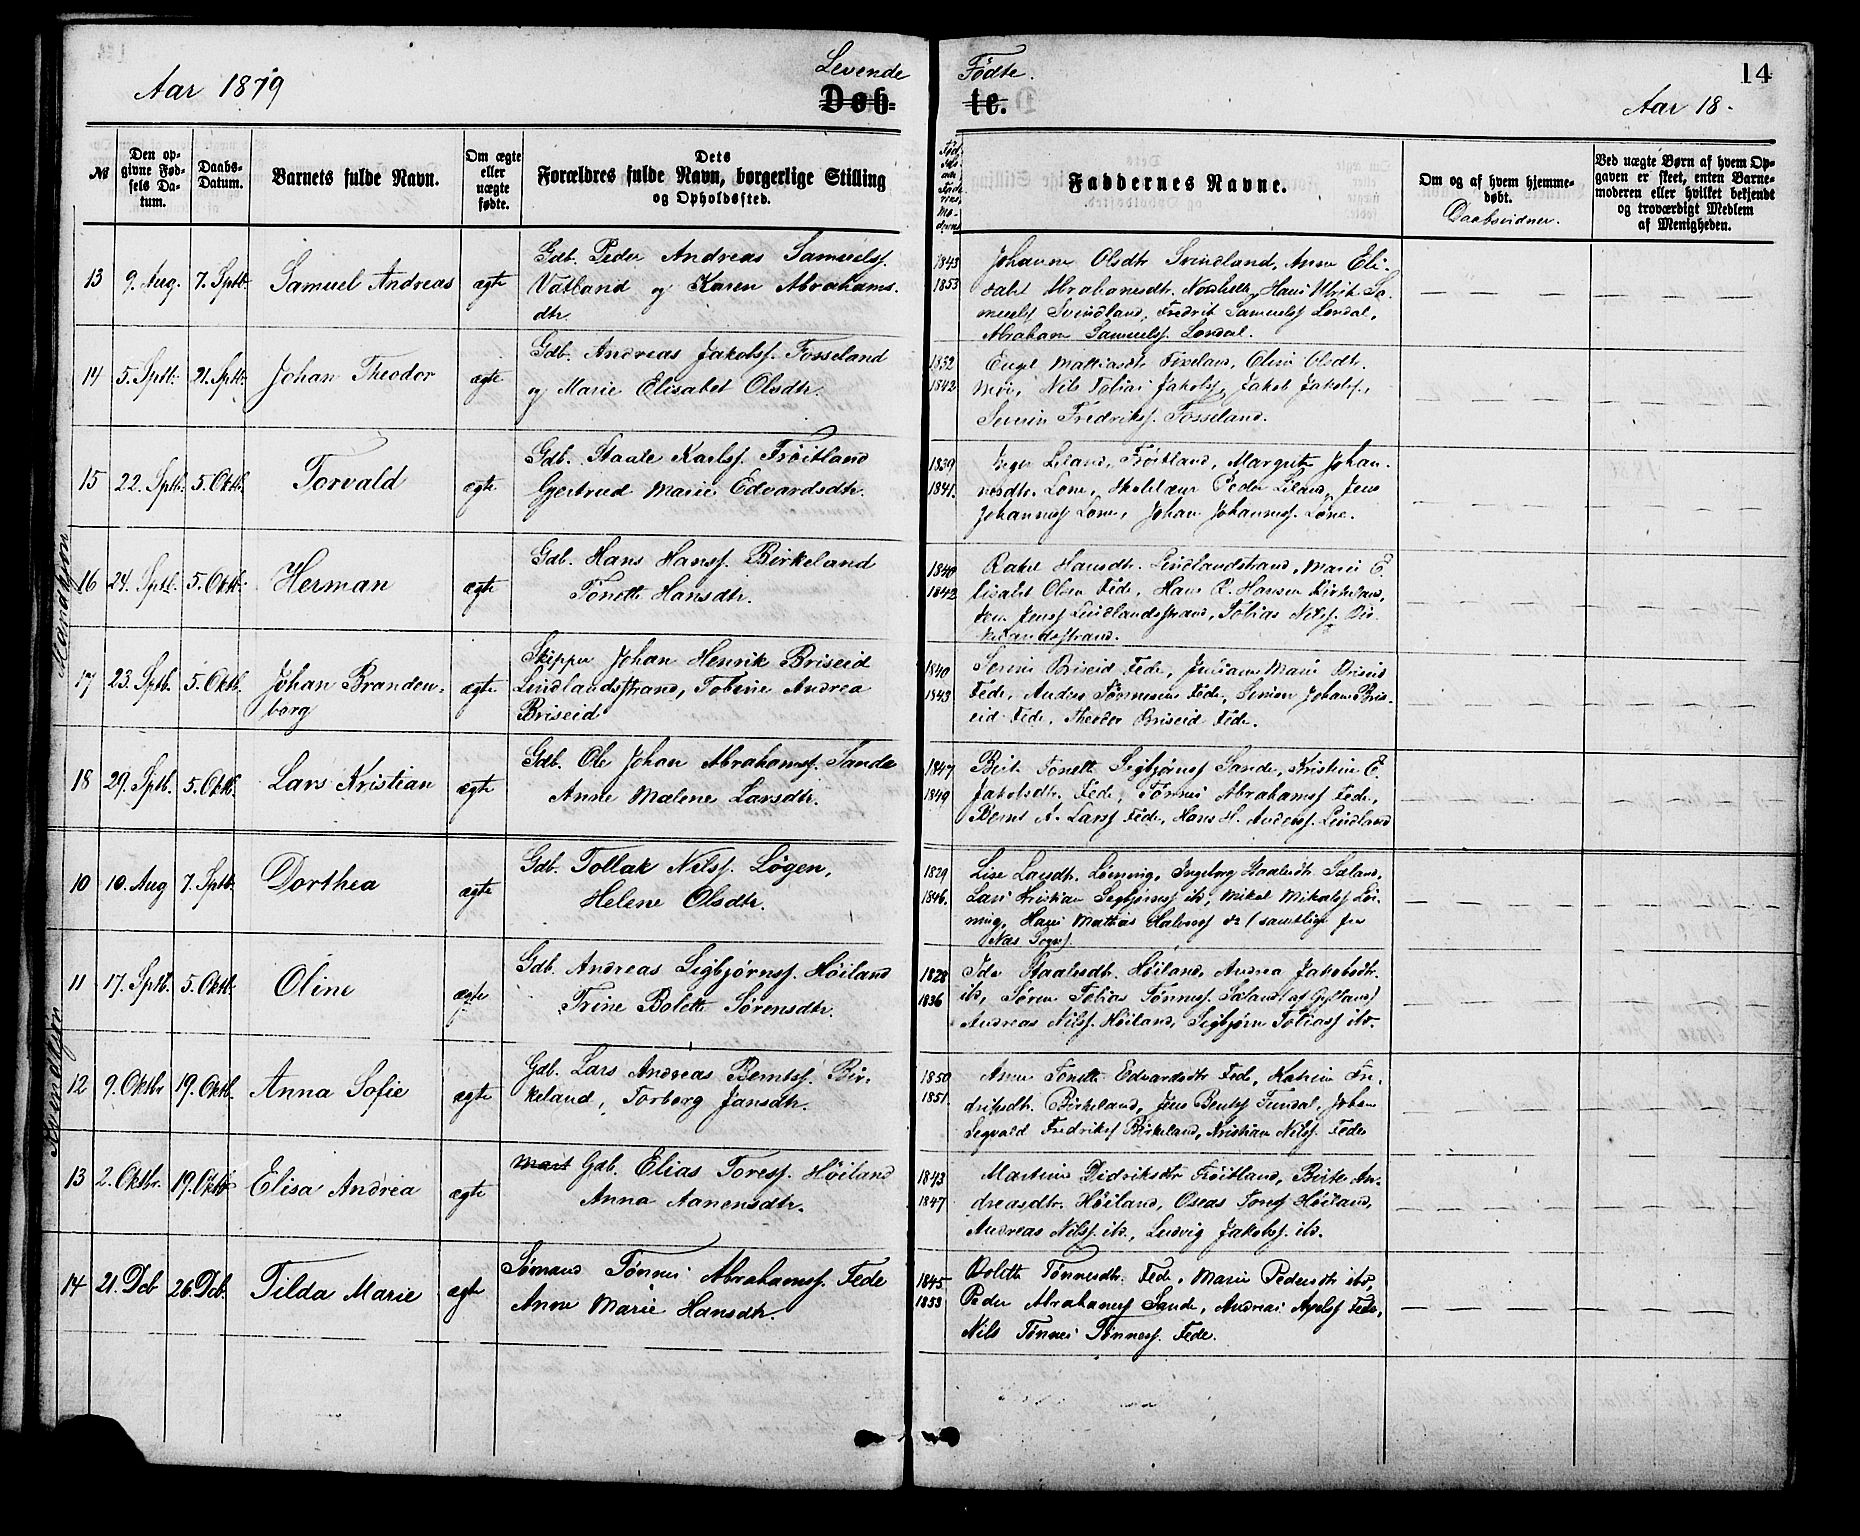 Aar 1879
Levende
Døb-
Fødte.
te.
14
Aar 18-
№
Den op-
givne Fød-
sels Da-
tum.
Daabs-
Datum.
Barnets fulde Navn.
Om ægte
eller
uægte
fødte.
Dets
Forældres fulde Navn, borgerlige Stilling
og Opholdssted.
Faddernes Navne.
Om og af hvem hjemme-
døbt.
Daabsvidner.
Ved uægte Børn af hvem Op-
gaven er skeet, enten Barne-
moderen eller hvilket bekjendt
og troværdigt Medlem
af Menigheden.
Mandkjøn
13 9. Aug. 7. Sptb. Samuel Andreas ægte
Gdb. Peder Andreas Samuelsf.
Vatland og Karen Abrahams-
dtr.
1843
1853
Johanne Olsdtr Svindland, Anne Eli-
sabet Abrahamsdtr. Hans Ulrik Sa-
muelsf Svindland, Fredrik Samuelsf Lordal,
Abraham Samuelsf Lordal.
14 5. Sptb. 21. Sptb. Johan Theodor ægte
Gdb. Andreas Jakobsf. Fosseland
og Marie Elisabet Olsdtr.
1832
1842
Engel Olsdtr.
Møi, Nils Tobias Jakobsf, Jakob Jakobsf,
Severin Fredriksf. Fosseland.
15 22. Sptb. 5. Oktb. Torvald ægte
Gdb. Staale Karlsf. Frøitland
Gjertrud Marie Edvardsdtr.
1839
1841.
Inger Liland, Frøitland, Margrete Johan-
nesdtr. Lone, Peder Liland, Jens
Johannesf Lone, Johan Johannesf. Lone.
16 24. Sptb. 5. Oktb. Herman ægte
Gdb. Hans Hansf. Birkeland
Tonette Hansdtr.
1840
1842
Rakel Hansdtr. Lindlandstrand, Marie E-
lisabet Olsen Fede, Hans R. Hansen Birkeland,
Jens Jensf Lindlandsstrand, Tobias Nilsf. Lin-
landsstrand.
17 23. Sptb. 5. Oktb. Johan Branden-
borg ægte
Skipper Johan Henrik Briseid
Lindlandsstrand, Tobine Andrea
Briseid
1840
1843
Serine Briseid Fede, Juliane Marie Briseid
Fede, Andreas Tønnesen Fede, Simon Johan Bris-
eid Fede, Theodor Briseid Fede.
18 29. Sptb. 5. Oktb. Lars Kristian ægte
Gdb. Ole Johan Abrahamsf. Sande
Anne Malene Larsdtr.
1847
1849
Berte Tonette Sigbjørnsf Sande, Kristine E.
Jakobsdtr. Fede, Tønnes Abrahamsf Fede,
Bernt A. Larsf Fede, Hans H. Andersf. Lindland
Kvindekjøn
10 10. Aug 7. Sptb. Dorthea ægte
Gdb. Tollak Nilsf. Løgen,
Helene Olsdtr.
1829
1846.
Lise Larsdtr. Lønning, Ingeborg Staalesdtr. Sæland,
Lars Kristian Sigbjørnsf ib, Mikel Mikalsf Løn-
ning, Hans Mathias Halvorsf (samtlige fra
Næs Sogn).
11 17. Sptb 5. Oktb. Oline ægte
Gdb. Andreas Sigbjørnsf. Høiland
Trine Bolette Sørensdtr.
1828
1836
Ida Staalesdtr. Høiland, Andrea Jakobsdtr.
ib, Søren Tobias Tønnesf. Sæland (af Gylland)
Andreas Nilsf. Høiland, Sigbjørn Tobiasf ib.
12 9. Oktbr 19. Oktb. Anna Sofie ægte
Gdb. Lars Andreas Berntsf. Bir-
keland, Torborg Jansdtr.
1850
1851.
Anne Tonette Edvardsdtr Fede, Katrine Fre-
driksdtr. Birkeland, Jens Bentsf Tundal, Johan
Sigvald Fredriksf Birkeland, Kristian Nilsf. Fede
13 2. Oktbr. 19. Oktb. Elisa Andrea ægte
Gdb. Elias Toresf. Høiland
Anna Aanensdtr.
1843
1847
Martine Didriksdtr Frøitland, Berte An-
dreasdtr. Høiland, Oseas Toresf Høiland,
Andreas Nilsf. ib., Ludvig Jakobsf. ib.
14 21. Dcb 26. Dcb. Tilda Marie ægte
Sømand Tønnes Abrahamsf. Fede
Anne Marie Hansdtr.
1845
1853
Bolette Tønnesdtr. Fede, Marie Pedersdtr ib,
Peder Abrahamsf Sande, Andreas Axelsf Fede,
Nils Tønnes Tønnesf. Fede.